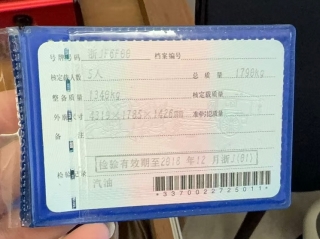 号牌号码 档案编号
核定载人数 5人 总 质 量 1798kg
整备质量 1345kg 核定载质量
外廓尺寸 准牵引总质量
备 注
检验有效期至2018年12月浙J(01)
检验记录
汽油
*3370022725011*